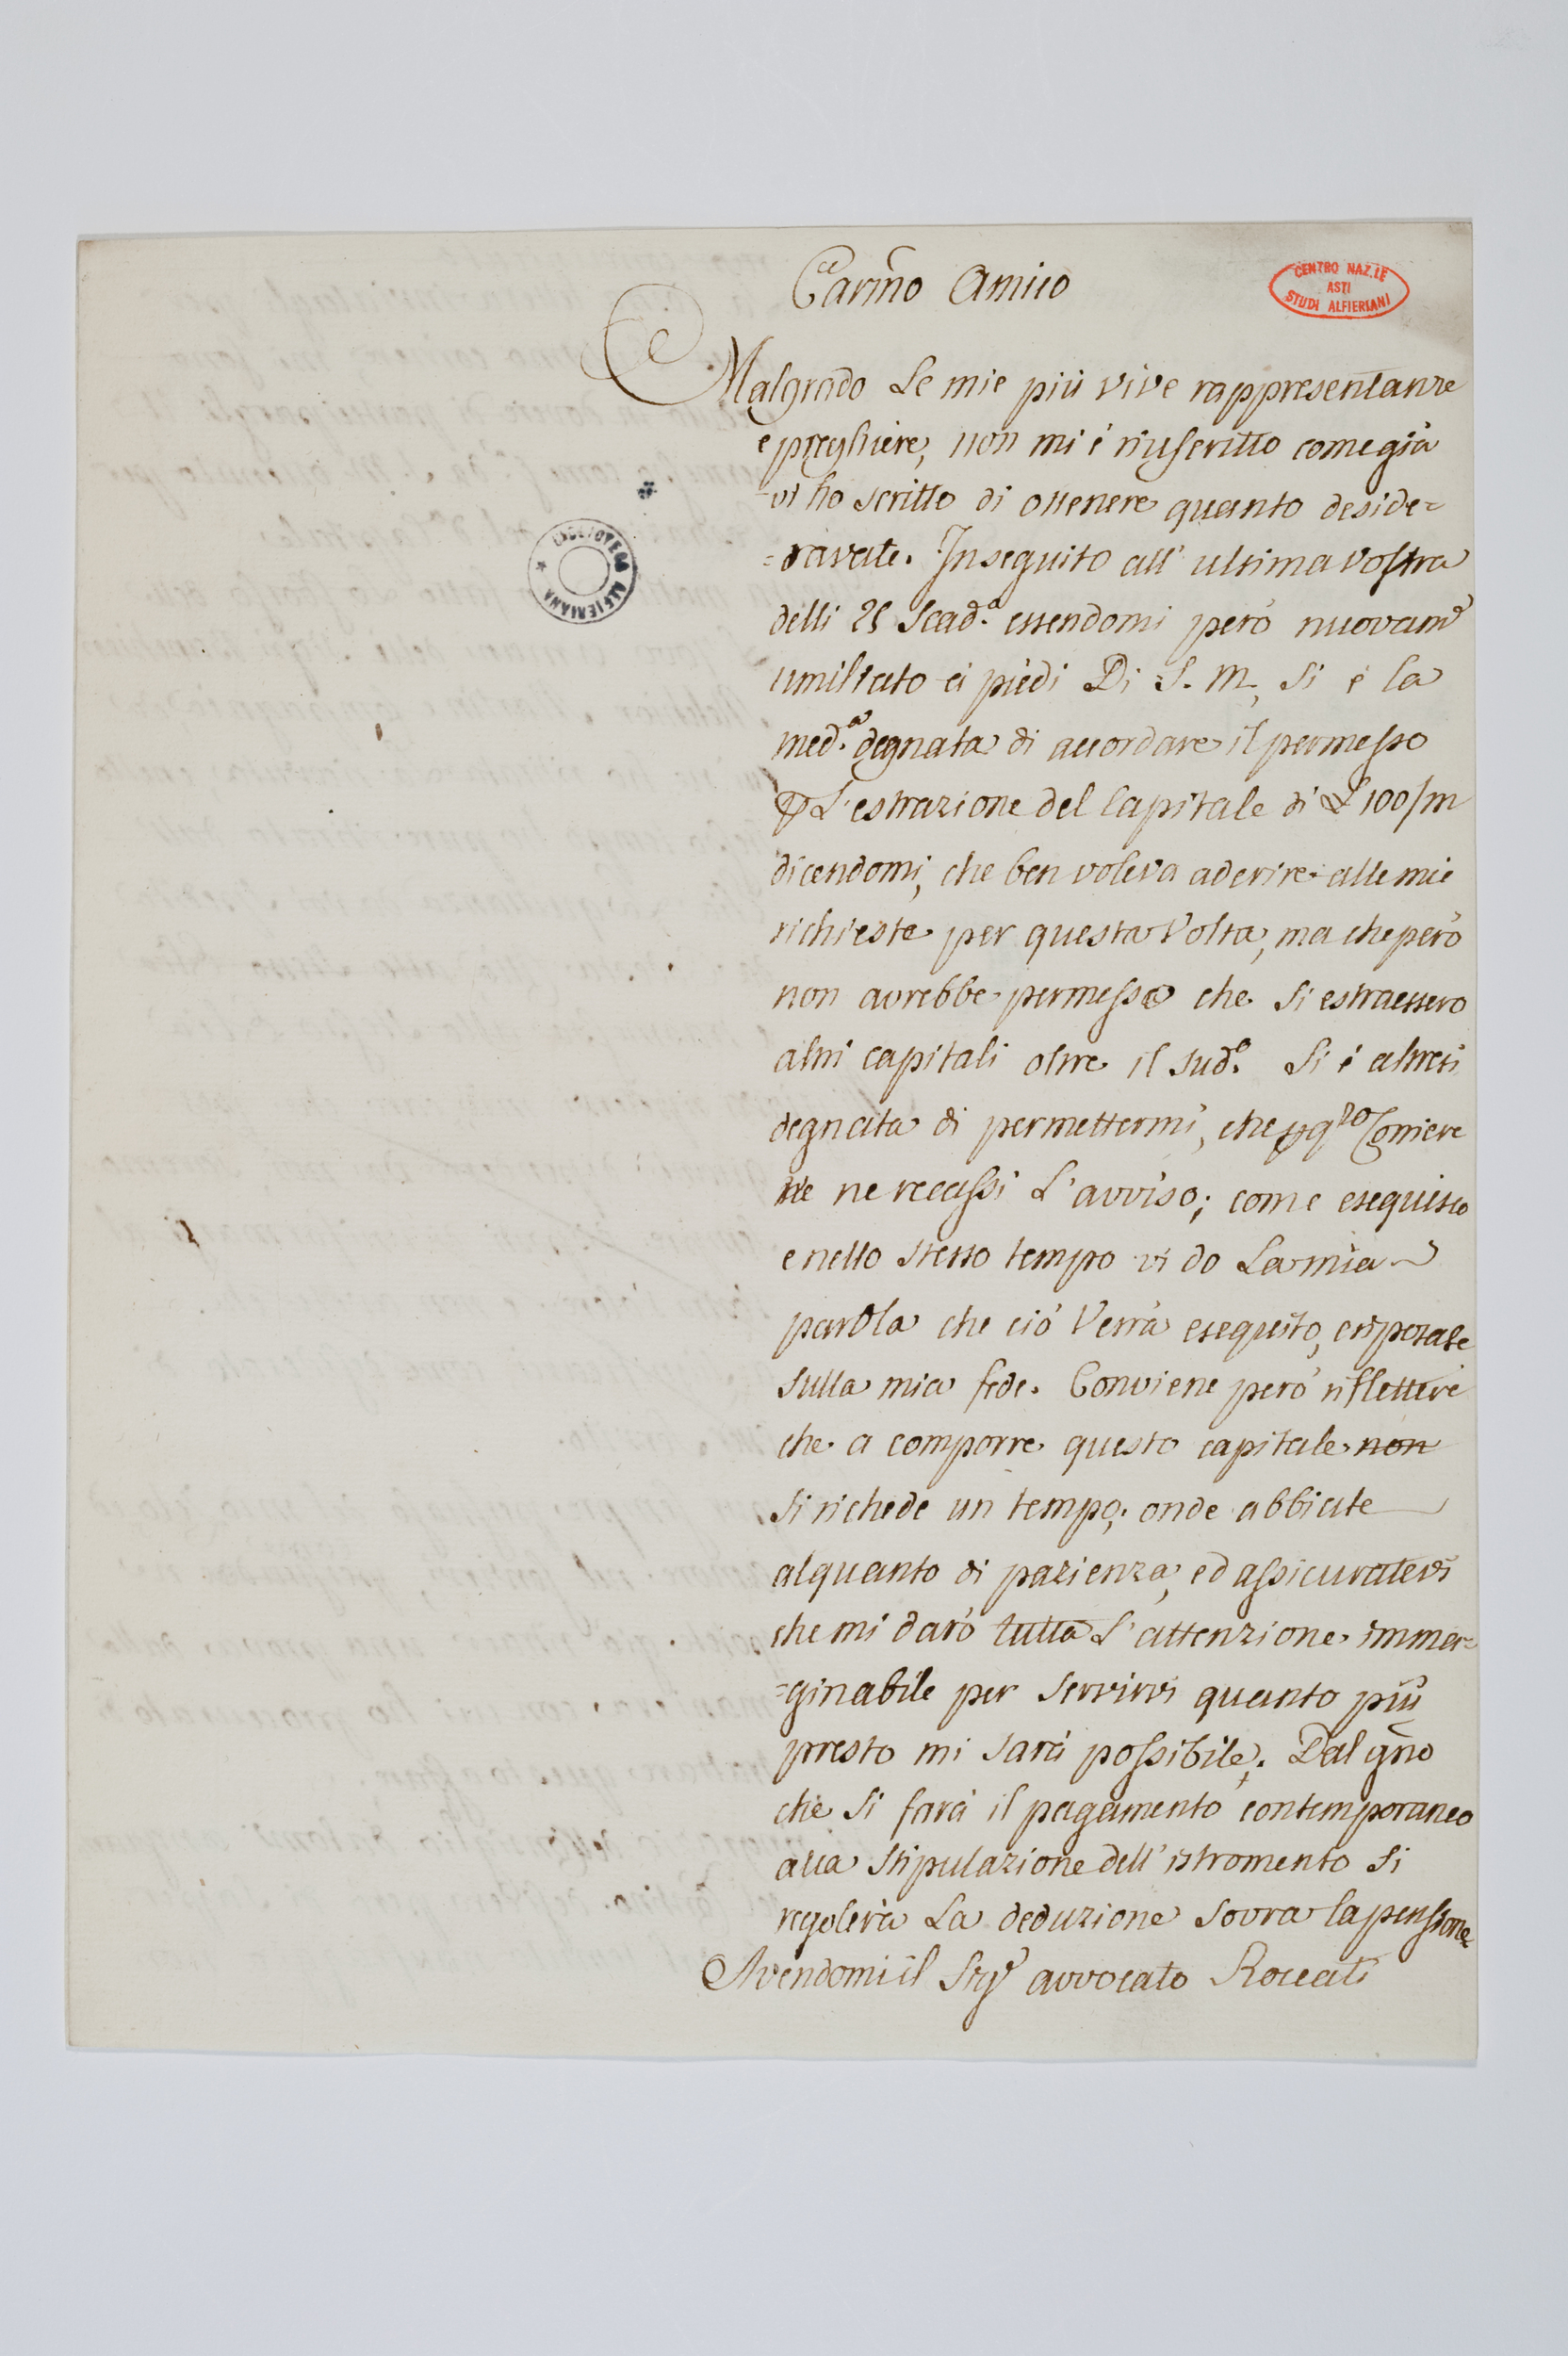 Carmo Amico
CENTRO NAZ.LE
ASTI
STUDI ALFIERIANI
Malgrado Le mie più vive rappresentanze
e preghiere, non mi è riuscritto come già
vi ho scritto di ottenere quanto deside=
=ravate. In seguito all' ultima vostra
delli 25 Scad.a essendomi però nuovamte
umiliato ai piedi Di S. M, si è la
med.a degnata di accordare il permesso
p L'estrazione del Capitale di L 100/m
dicendomi, che ben voleva aderire alle mie
richieste per questa Volta, ma che però
non avrebbe permesso che si estraessero
altri capitali oltre il sud.o Si è altresì
degnata di permettermi, che p qto Corriere
ne recassi L'avviso; come eseguisco
e nello stesso tempo vi do La mia
parola che ciò Verrà eseguito, e riposate
sulla mia fede. Conviene però riflettere
che a comporre questo capitale non
si richede un tempo; onde abbiate
alquanto di pazienza, ed assicuratevi
che mi darò tutta L'attenzione imma=
=ginabile per servirvi quanto più
presto mi sarà possibile. Dal gno
che si farà il pagamento contemporaneo
alla stipulazione dell'istromento si
regolerà La deduzione sovra la pensione
Avendomi il Sigr avvocato Roccati
CADEIOTECA ALFIERIANA